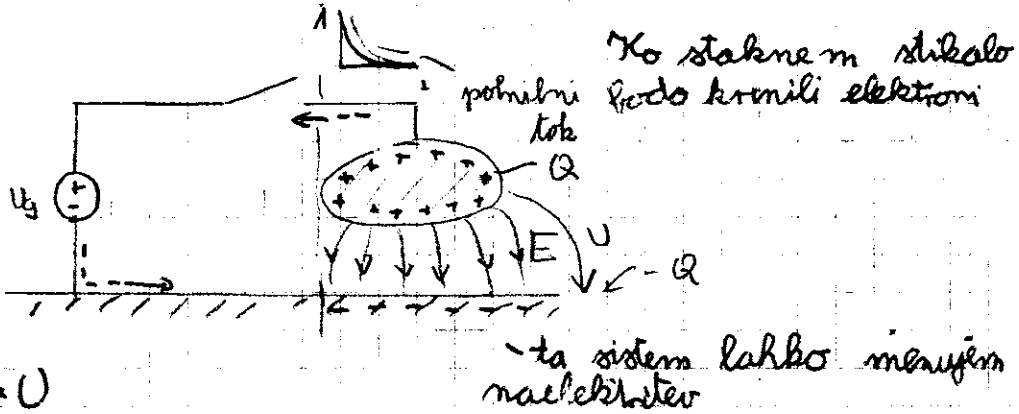 Ko staknem stikalo
polnilni bodo krenili elektroni
tok
Q
Ug
E
U
-Q
- ta sistem lahko menujem
naelektritev
U